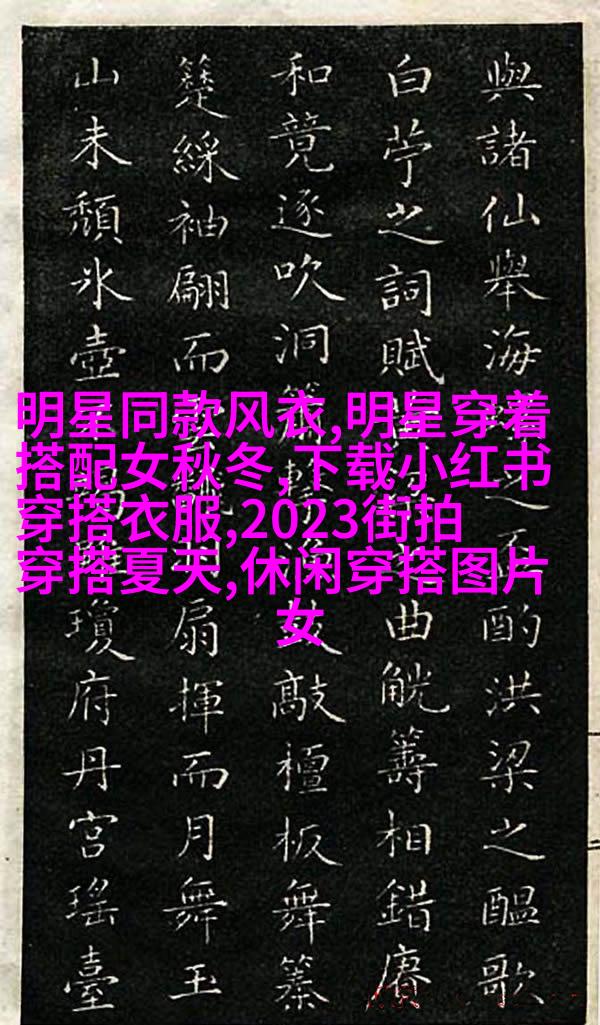 明星同款风衣,明星穿着
搭配女秋冬,下载小红书
穿搭衣服,2023街拍
穿搭夏天,休闲穿搭图片
女
與諸仙舉海之酌洪梁之醞歌
白苧之詞賦曲觥籌相錯賡
和竟逐吹洞鼓敲檀板舞
綵袖翩而扇揮而月舞玉
山未頹氷壺瓊府丹宮瑤臺